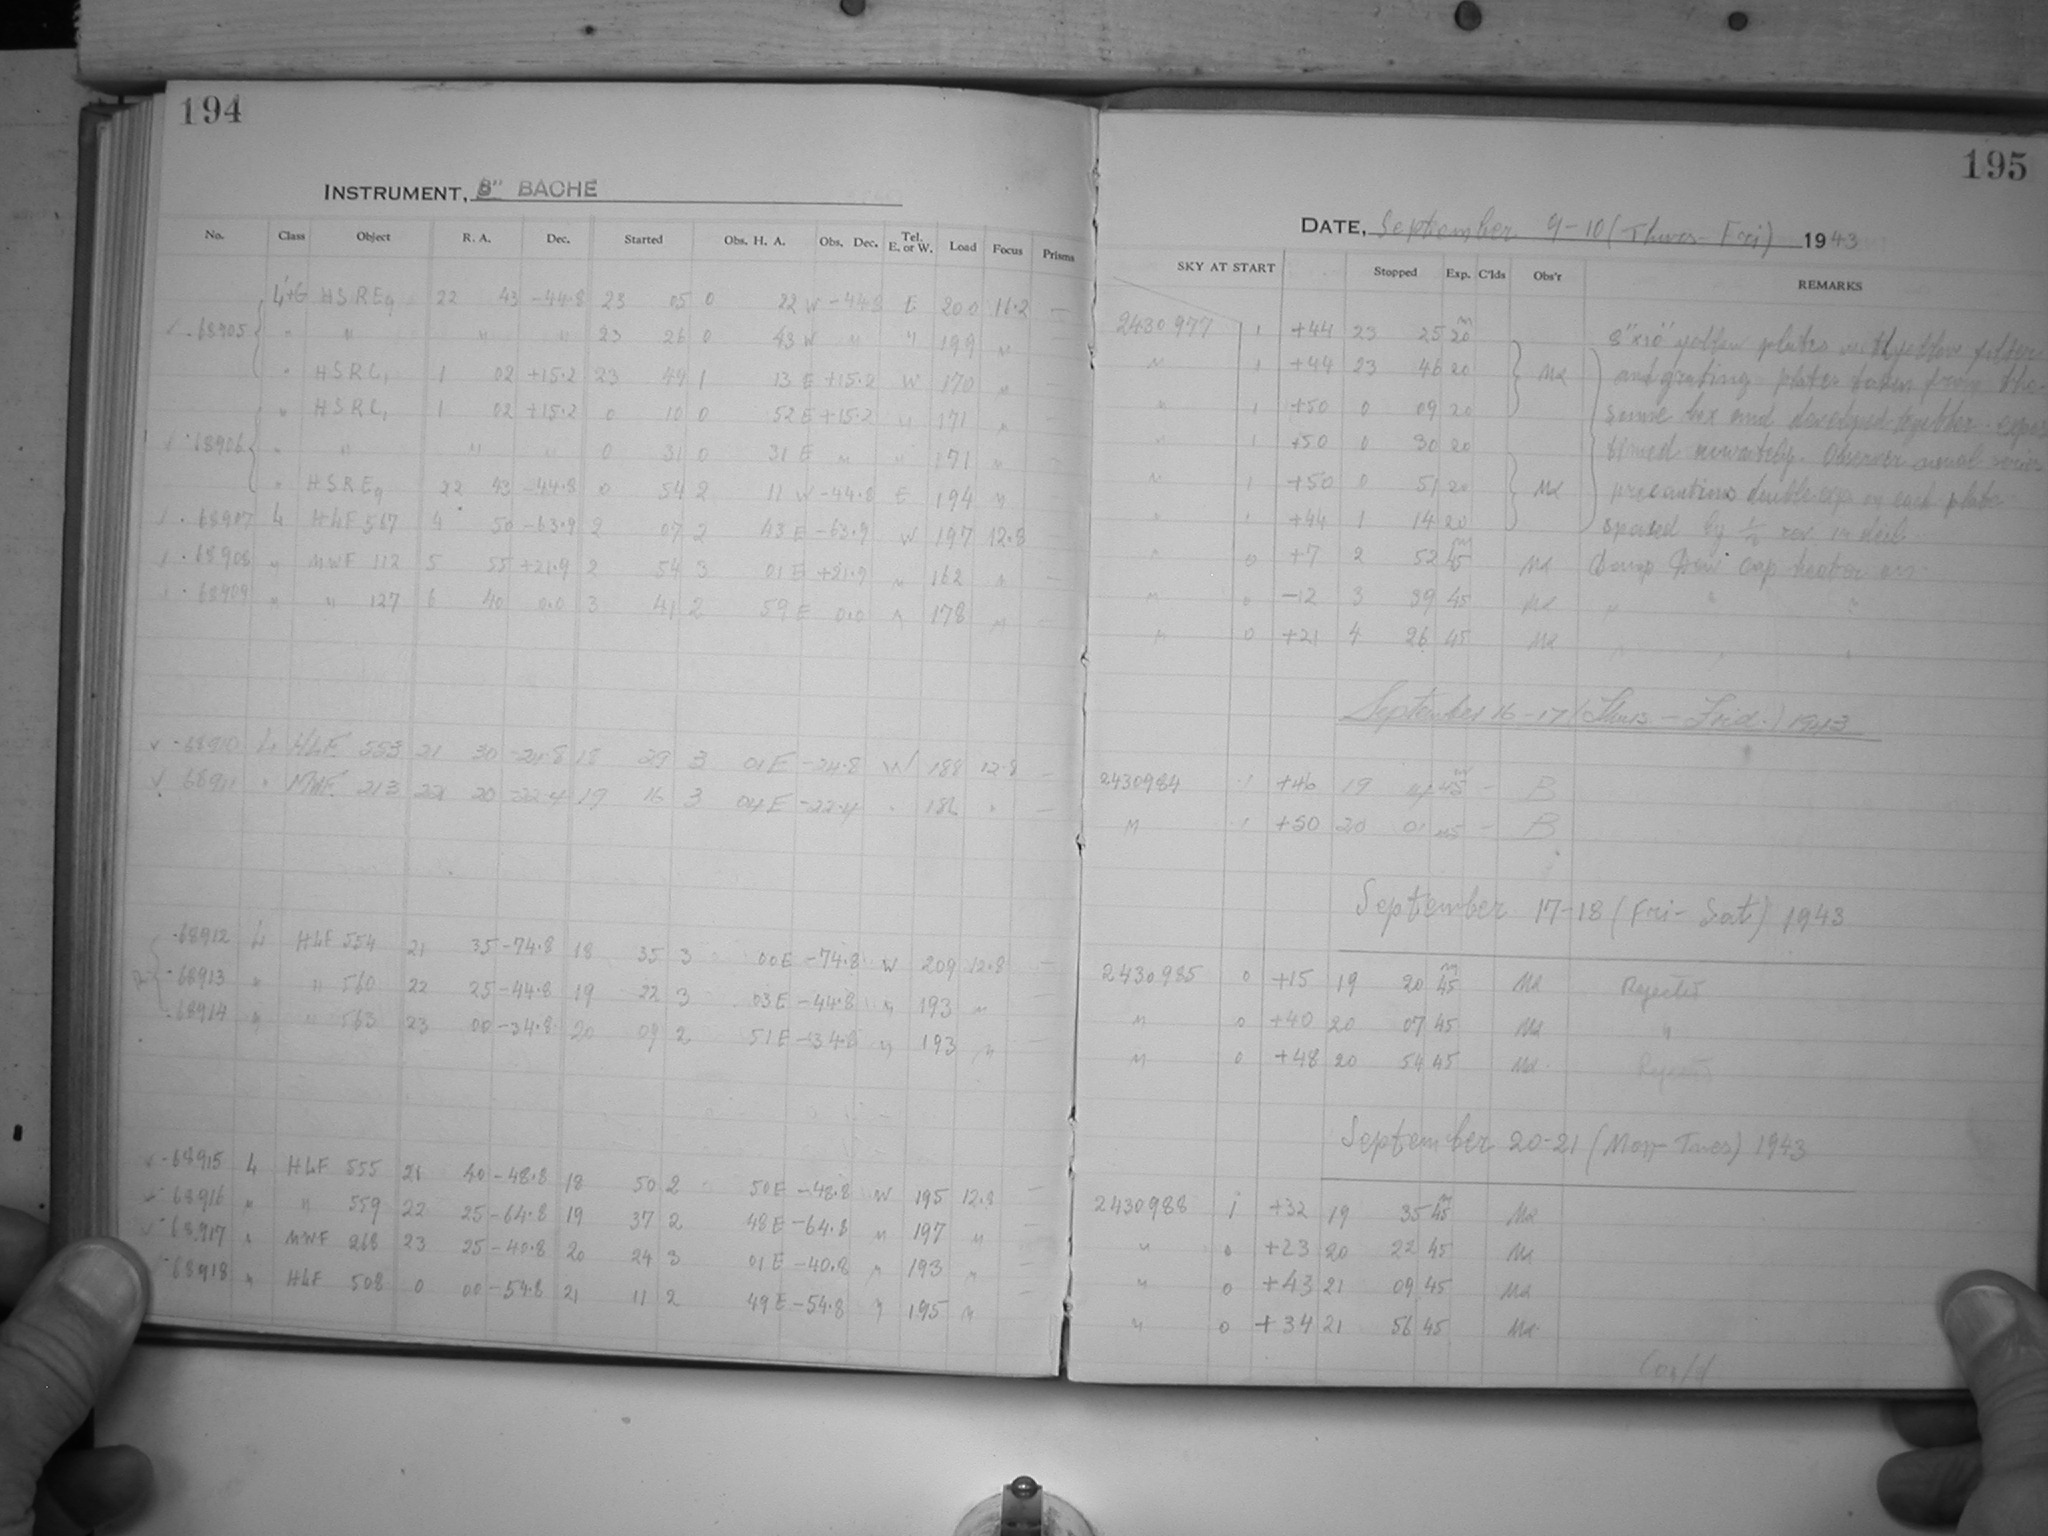 194
INSTRUMENT, 8" BACHE
No. Class Object R. A. Dec. Started Obs. H. A. Obs. Dec. Tel. E. or W. Load Focus Prisms
L+G HSRE9 22 43 -44.8 23 05 0 22 W -44.8 E 200 16.2 —
68905 " " " " 23 26 0 43 W " " 199 "
" HSRC1 1 02 +15.2 23 49 1 13 E +15.2 W 170 "
" HSRC1 1 02 +15.2 0 10 0 52 E +15.2 " 171 "
68906 " " " " 0 31 0 31 E " " 171 "
" HSRE9 22 43 -44.8 0 54 2 11 W -44.8 E 194 "
68907 L HLF 567 4 50 -63.9 2 07 2 43 E -63.9 W 197 12.8
68908 " MWF 112 5 55 +21.9 2 54 3 01 E +21.9 " 162 " —
68909 " " 127 6 40 0.0 3 41 2 59 E 0.0 " 178 "
68910 L HLF 553 21 30 -24.8 18 29 3 01 E -24.8 W 188 12.8 —
68911 " MWF 213 22 20 -22.4 19 16 3 04 E -22.4 " "  —
68912 L HLF 554 21 35 -74.8 18 35 3 00 E -74.8 W 209 12.8 —
68913 " " 560 22 25 -44.8 19 22 3 03 E -44.8 " 193 " —
68914 " " 563 23 00 -34.8 20 09 2 51 E -34.8 " 193 " —
68915 L HLF 555 21 40 -48.8 18 50 2 50 E -48.8 W 195 12.8 —
68916 " " 559 22 25 -64.8 19 37 2 48 E -64.8 " 197 "
68917 " MWF 268 23 25 -40.8 20 24 3 01 E -40.8 " 193 " —
68918 " HLF 508 0 00 -54.8 21 11 2 49 E -54.8 " 195 "
195
DATE, September 9-10 (Thurs-Fri) 1943
SKY AT START Stopped Exp. C'lds Obs'r REMARKS
2430977 1 +44 23 25 20m 8"x10" yellow plates with yellow filter
" 1 +44 23 46 20 Md and grating plates taken from the
" 1 +50 0 09 20 same box and developed together.
" 1 +50 0 30 20 timed accurately. Observer usual
" 1 +50 0 51 20 Md precautions double exp on each plate
" 1 +44 1 14 20 spaced by 1/2 rev in decl.
" 0 +7 2 52 45m Md Damp Dew cap heater on
" 0 -12 3 39 45 Md " " "
" 0 +21 4 26 45 Md " " "
September 16-17 (Thurs-Frid.) 1943
2430984 1 +46 19 45m — B
" 1 +50 20 01 45 — B
September 17-18 (Fri-Sat) 1943
2430985 0 +15 19 20 45m Md Rejected
" 0 +40 20 07 45 Md "
" 0 +48 20 54 45 Md Rejected
September 20-21 (Mon-Tues) 1943
2430988 1 +32 19 35 45m Md
" 0 +23 20 22 45 Md
" 0 +43 21 09 45 Md
" 0 +34 21 56 45 Md
Cont'd